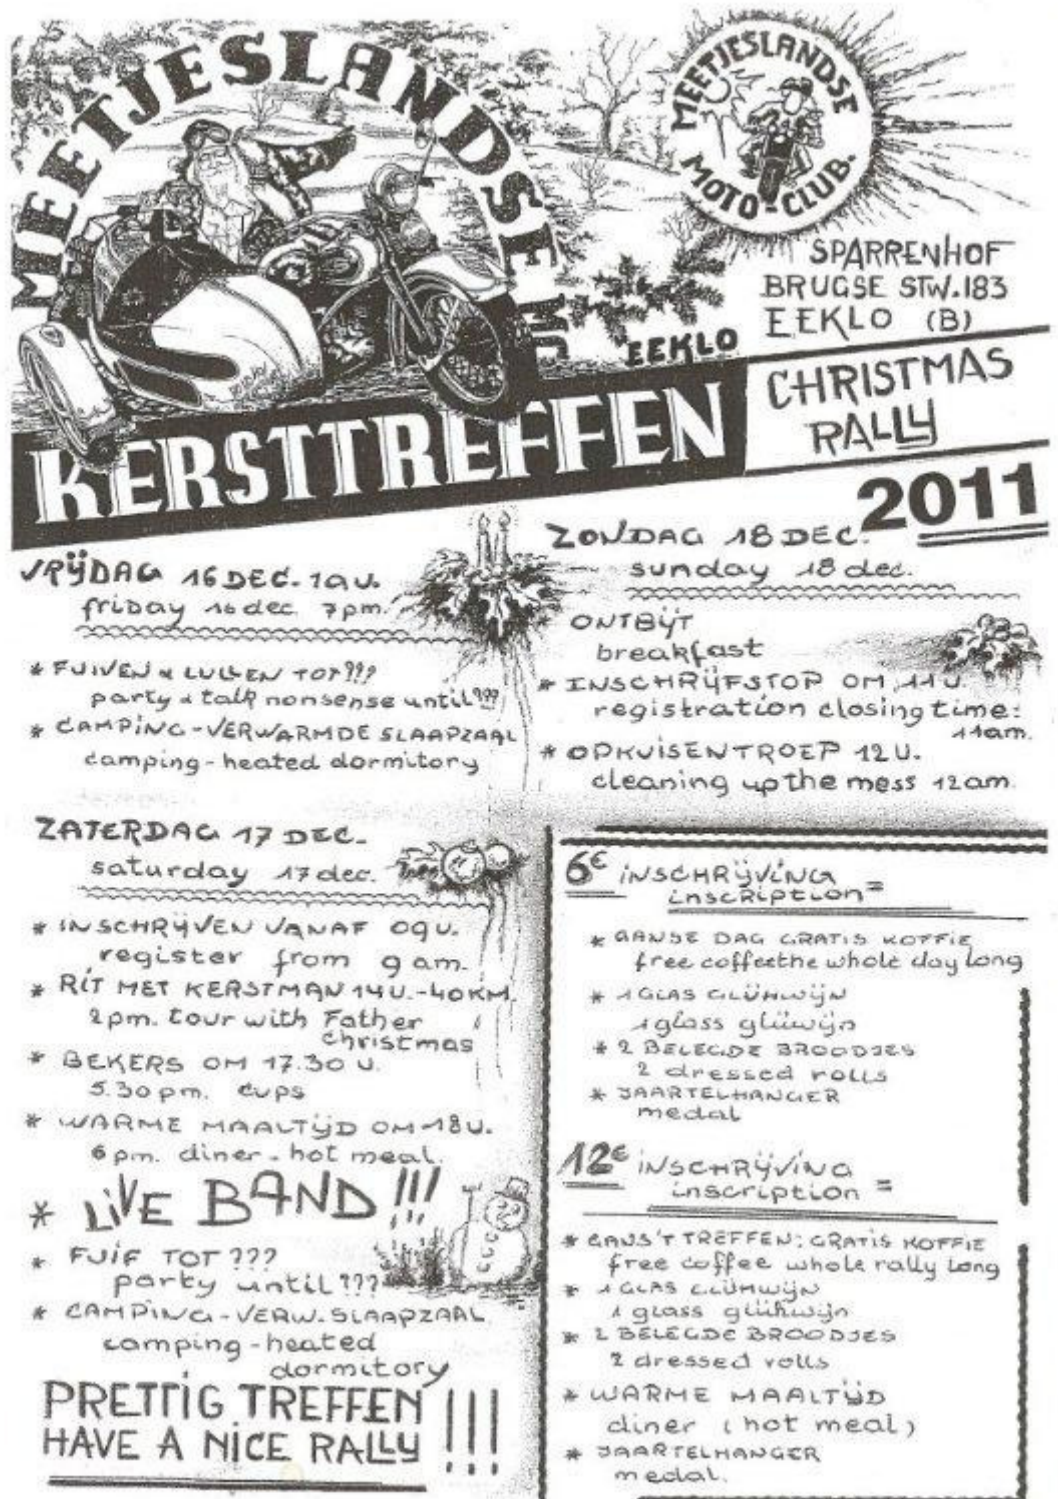 MEETJESLANDSE MC
EEKLO
MEETJESLANDSE
MOTO-CLUB.
SPARRENHOF
BRUGSE STW.183
EEKLO (B)
KERSTTREFFEN
CHRISTMAS
RALLY
2011
VRIJDAG 16 DEC. 19U.
friday 16 dec. 7pm.
* FUIVEN & LULLEN TOT ???
party & talk nonsense until ???
* CAMPING-VERWARMDE SLAAPZAAL
camping-heated dormitory
ZATERDAG 17 DEC.
saturday 17 dec.
* INSCHRIJVEN VANAF 09U.
register from 9 am.
* RIT MET KERSTMAN 14U.-40KM.
2pm. tour with Father
christmas
* BEKERS OM 17.30 U.
5.30 pm. cups
* WARME MAALTIJD OM 18U.
6 pm. diner - hot meal.
* LIVE BAND!!!
* FUIF TOT ???
party until ???
* CAMPING-VERW. SLAAPZAAL
camping-heated
dormitory
PRETTIG TREFFEN
HAVE A NICE RALLY !!!
ZONDAG 18 DEC.
sunday 18 dec.
* ONTBIJT
breakfast
* INSCHRIJFSTOP OM 11U.
registration closing time:
11am.
* OPKUISENTROEP 12U.
cleaning up the mess 12am.
6€ INSCHRIJVING
inscription =
* GANSE DAG GRATIS KOFFIE
free coffee the whole day long
* 1 GLAS GLÜHWIJN
1 glass glüwijn
* 2 BELEGDE BROODJES
2 dressed rolls
* JAARTELHANGER
medal
12€ INSCHRIJVING
inscription =
* GANS'T TREFFEN: GRATIS KOFFIE
free coffee whole rally long
* 1 GLAS GLÜHWIJN
1 glass glühwijn
* 2 BELEGDE BROODJES
2 dressed rolls
* WARME MAALTIJD
diner (hot meal)
* JAARTELHANGER
medal.